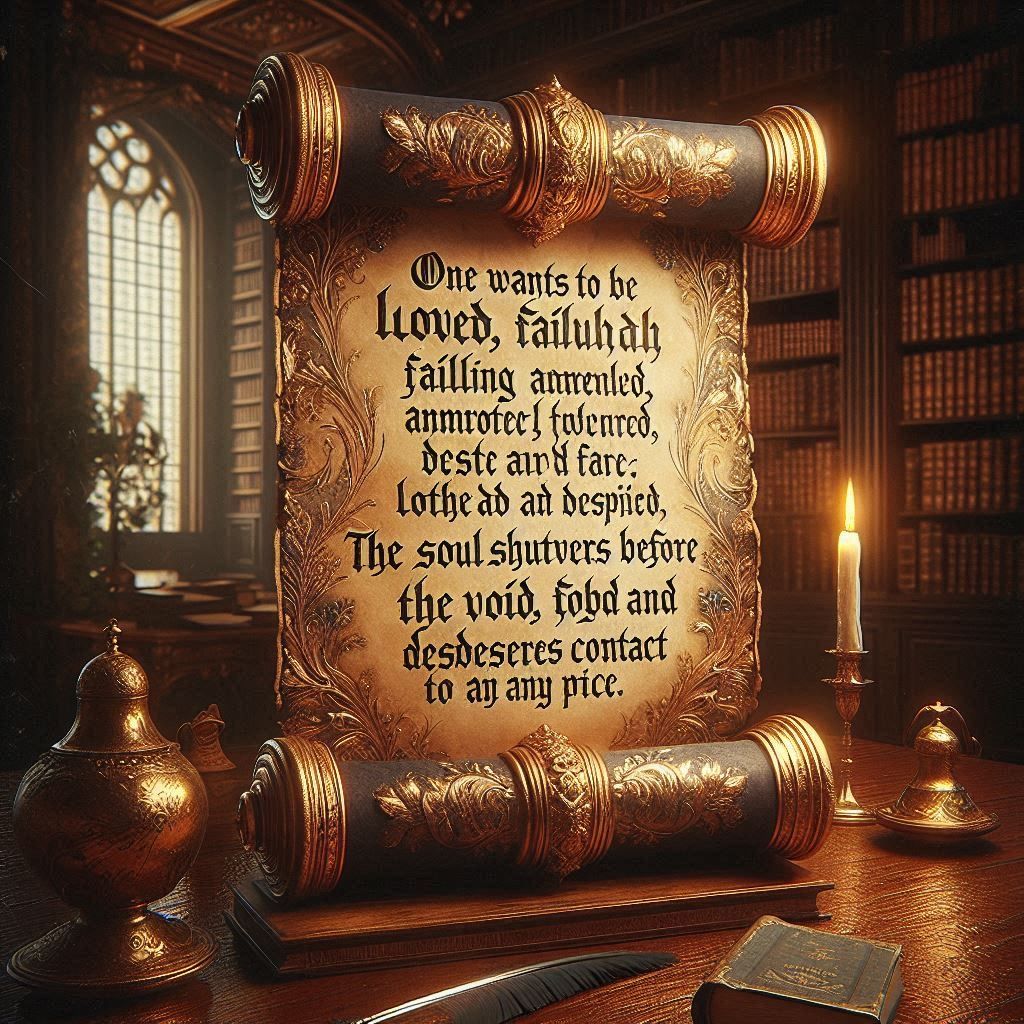 One wants to be
loved, failuhdh
failling anmrenled,
anmrotec] foldenred,
deste and fare:
lothe ad ad despiied,
The soul shutvers before
the void, fobd and
desdeseres contact
to ay any pice.